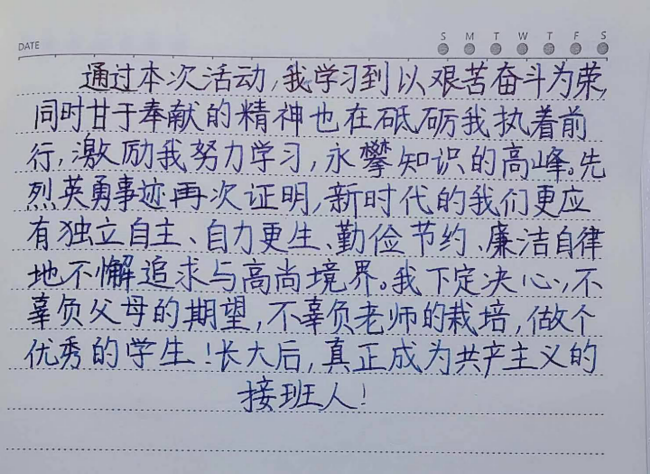 DATE
S M T W T F S
通过本次活动,我学习到以艰苦奋斗为荣,
同时甘于奉献的精神也在砥砺我执着前
行,激励我努力学习,永攀知识的高峰。先
烈英勇事迹再次证明,新时代的我们更应
有独立自主、自力更生、勤俭节约、廉洁自律
地不懈追求与高尚境界。我下定决心,不
辜负父母的期望,不辜负老师的栽培,做个
优秀的学生!长大后,真正成为共产主义的
接班人!